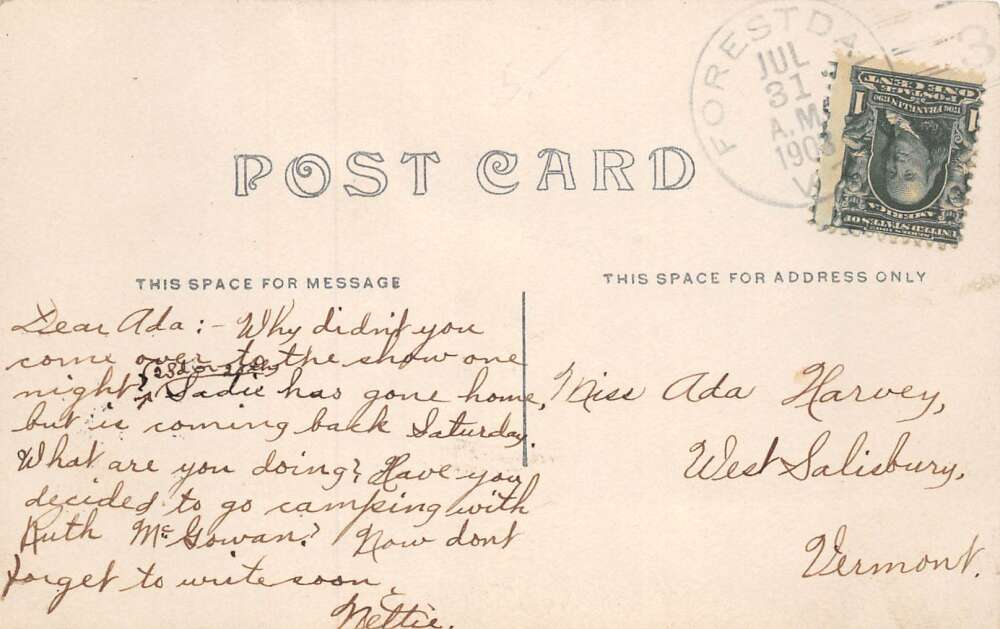 FORESTDA
JUL
31
A.M.
1908
3
POSTAGE
ONE CENT
1 1
1706 FRANKLIN 1790
UNITED STATES OF
AMERICA
POST CARD
THIS SPACE FOR MESSAGE
THIS SPACE FOR ADDRESS ONLY
Dear Ada:- Why didn't you
come over to the show one
night? (23d or 25th)
Sadie has gone home,
but is coming back Saturday.
What are you doing? Have you
decided to go camping with
Ruth McGowan? Now dont
forget to write soon
Nettie.
Miss Ada Harvey,
West Salisbury,
Vermont.